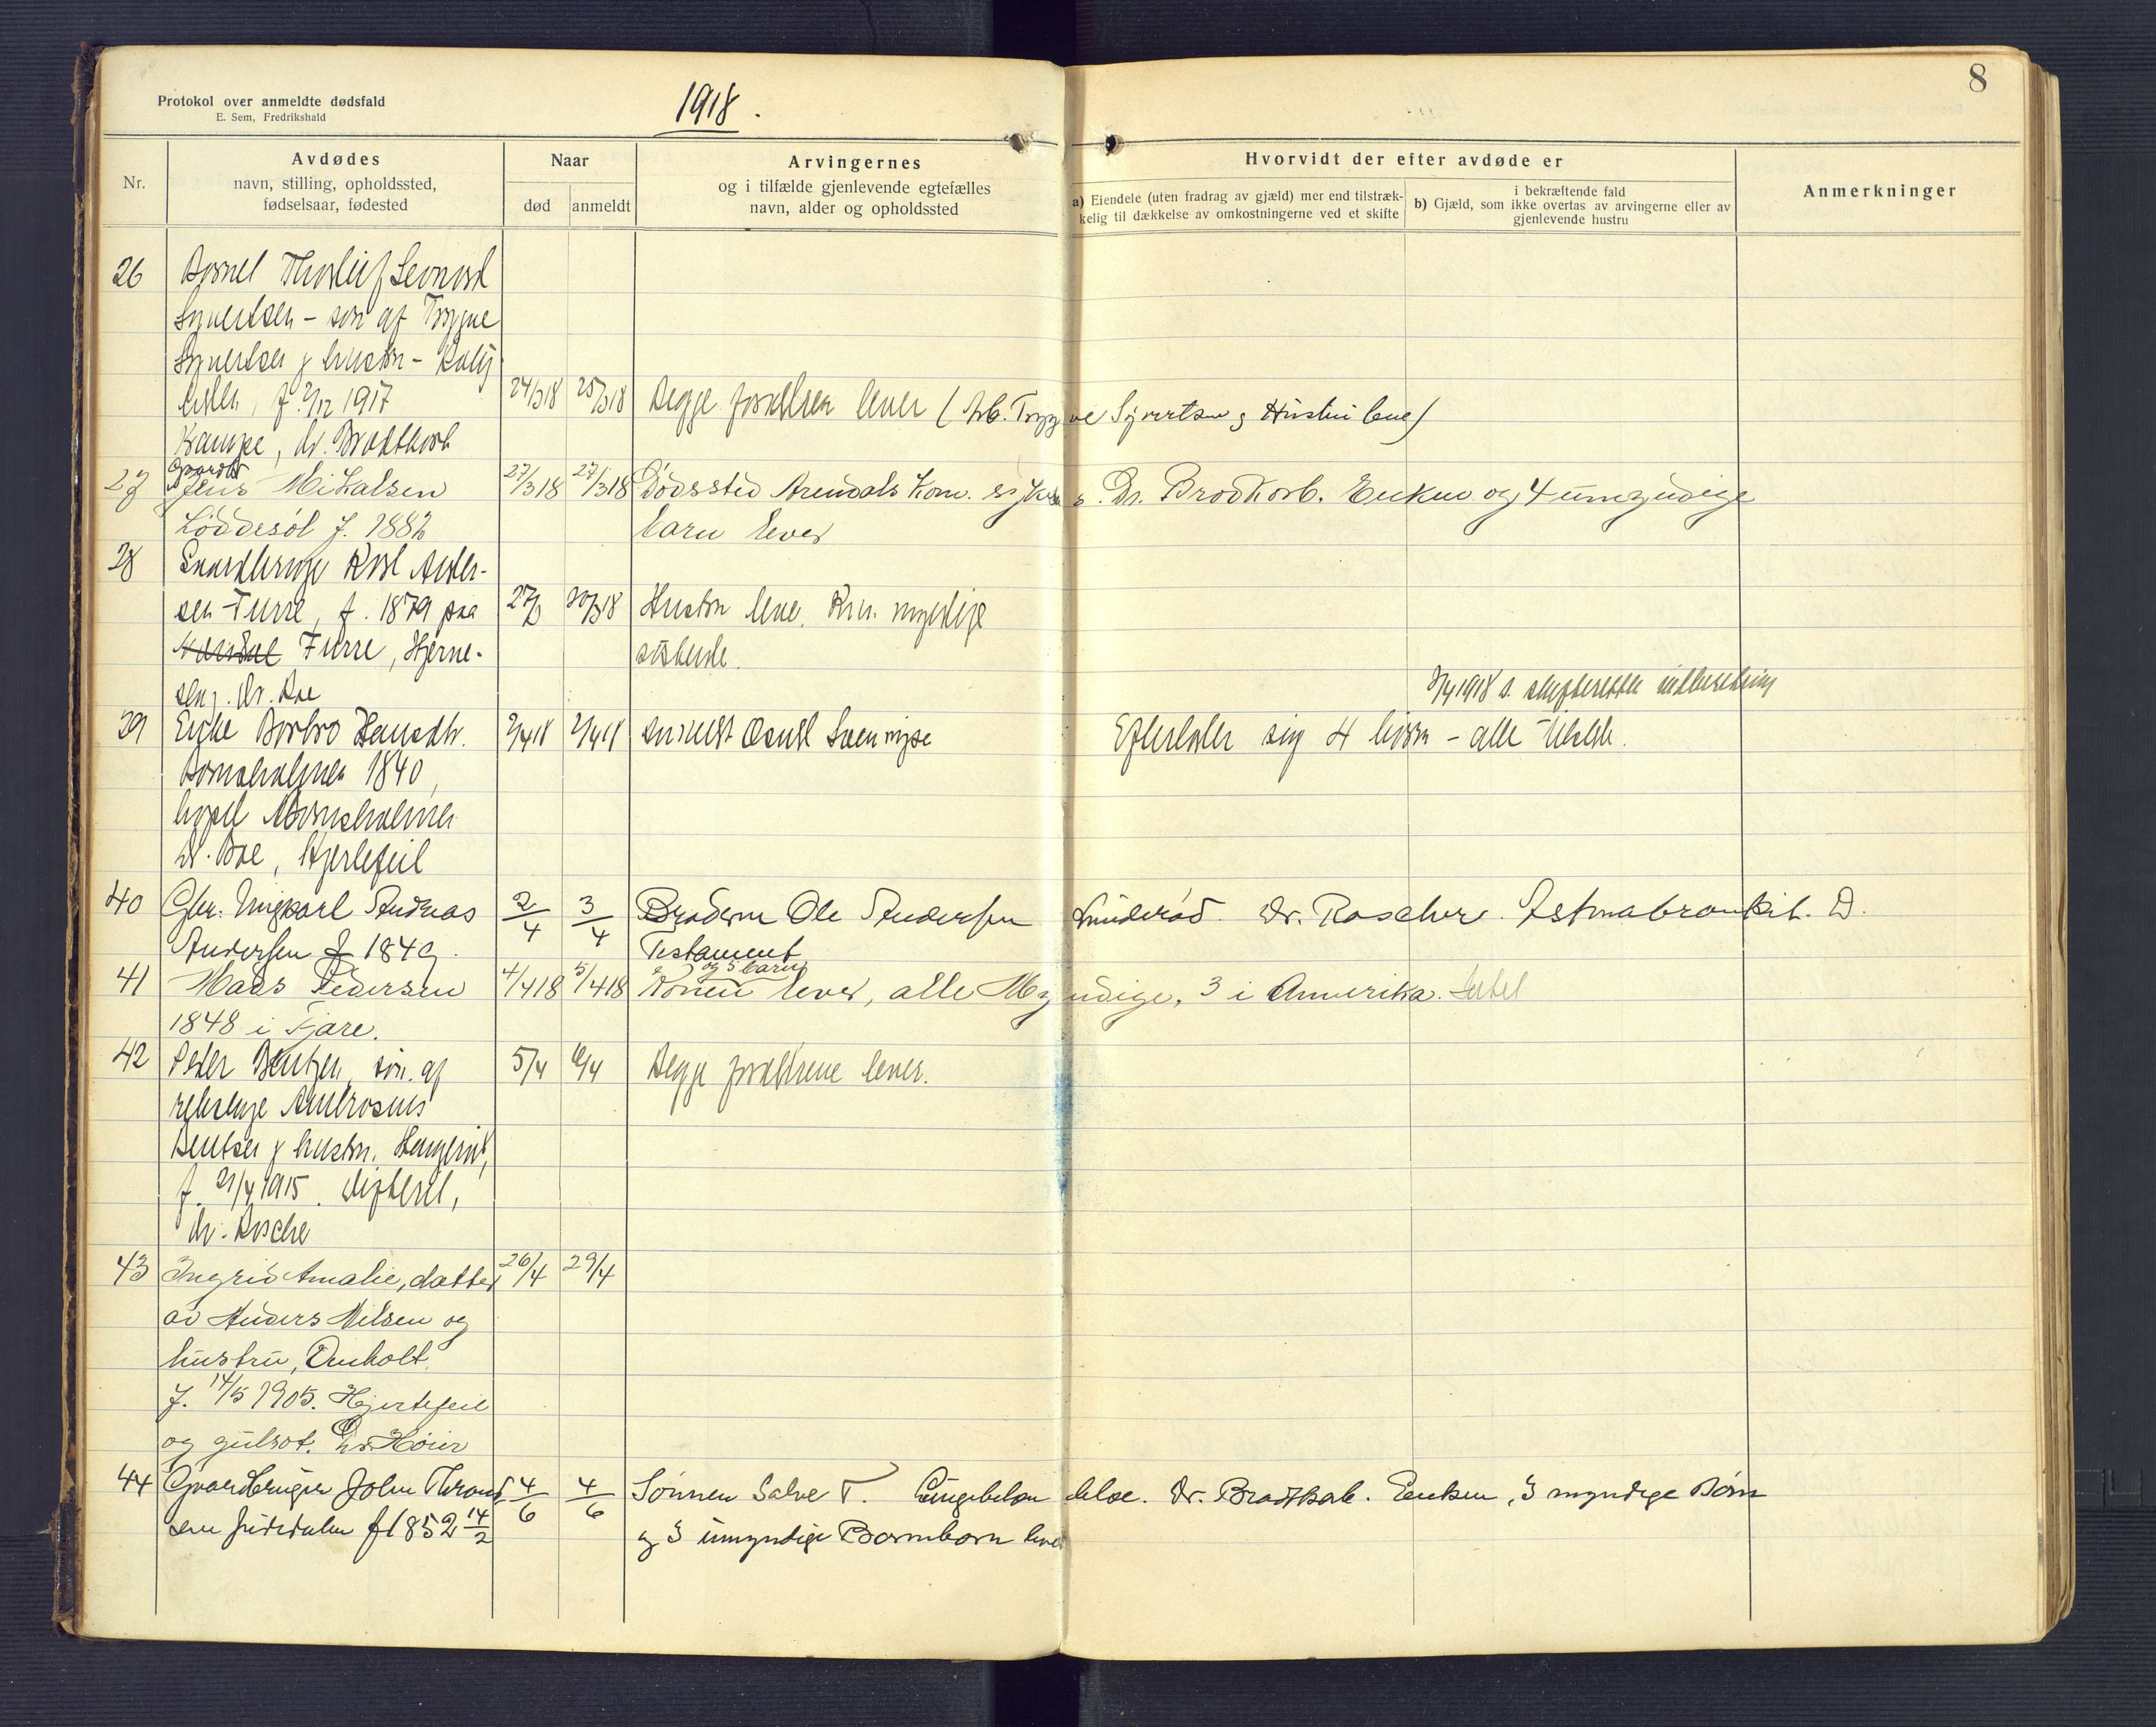 8
Protokol over anmeldte dødsfald
E. Sem, Fredrikshald
1918.
Nr.
Avdødes
navn, stilling, opholdssted,
fødselsaar, fødested
Naar
død
anmeldt
Arvingernes
og i tilfælde gjenlevende egtefælles
navn, alder og opholdssted
Hvorvidt der efter avdøde er
a) Eiendele (uten fradrag av gjæld) mer end tilstræk-
kelig til dækkelse av omkostningerne ved et skifte
i bekræftende fald
b) Gjæld, som ikke overtas av arvingerne eller av
gjenlevende hustru
Anmerkninger
26 Barnet Thorleif Leonard
Syvertsen - søn af Trygve
Syvertsen & hustru -
f. 1917 24/3 18 25/3 18 Begge forældren lever (Arb. Trygve Syvertsen og Hustru lever)
dr. Brodtkorb
27 Gaardbr
Jens Mikalsen 27/3 18 27/3 18 Dødssted Arendals Kom. sykehus. Dr. Brodkorb. Enken og 4 umyndige
Løddesøl f. 1882 barn lever
28 Gaardbruger Karl Ander-
sen Furre, f. 1879 paa 27/3 30/3 18 Hustru lever. Kun myndige
Furre, Hjerne- søskende.
dr. Boe
3/4 1918 s. skifteretten indberetning
39 Enke Barbro Hansdtr. 2/4 18 2/4 18 anmeldt Efterlader sig 4 børn - alle
Bornsholmen 1840,
bopæl Bornsholmen
Dr. Boe, Hjertefeil
40 Gbr. Ungkarl Andreas 2/4 3/4 Broderen Ole Andersen Lunderød. Dr. Roscher. Astmabronkit. D.
Andersen f 1849. Testament
og 5 barn
41 Mads Pedersen 4/4 18 5/4 18 Konen lever, alle Myndige, 3 i Amerika.
1848 i Fjære.
42 Peder Bentzen, søn af 5/4 6/4 Begge forældrene lever.
Ambrosius
Bentsen & hustru.
f. 21/4 1915. difterit,
dr. Roscher
43 Ingrid Amalie, datter 26/4 29/4
av Anders Nilsen og
hustru,
f. 14/5 1905. Hjertefeil
og gulsot. Dr. Høier
44 Gaardbruger John Thrond- 4/6 4/6 Sønnen Salve T. Lungebetændelse. Dr. Brodtkorb. Enken, 3 myndige Børn
sen f 1852 14/2 og 3 umyndige Barnebørn lever